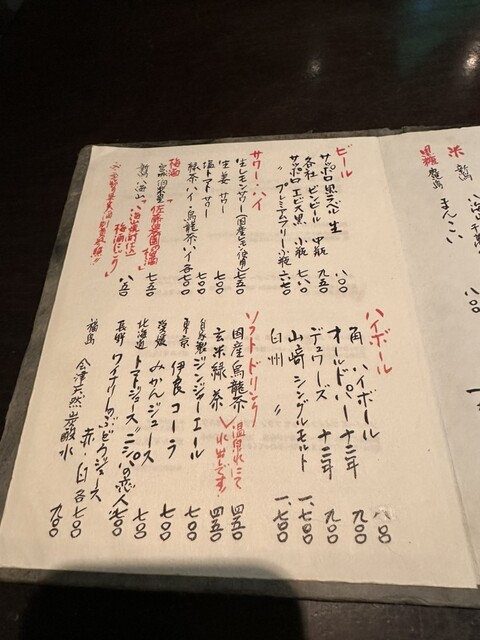 ビール
サッポロ黒ラベル 生 八〇〇
各社ビンビール 中瓶 九五〇
サッポロヱビス黒 小瓶 七〇〇
〃 プレミアムフリー小瓶 六七〇
サワー・ハイ
生レモンサワー(国産レモン使用) 七五〇
生姜サワー 七〇〇
塩トマトサワー 七〇〇
緑茶ハイ・烏龍茶ハイ 各七〇〇
梅酒
七五〇
八五〇
ハイボール
角ハイボール 八〇〇
オールドパー 十二年 九〇〇
デュワーズ 十二年 九〇〇
山崎シングルモルト 一、七〇〇
白州 〃 一、七〇〇
ソフトドリンク
国産烏龍茶 四五〇
玄米緑茶 四五〇
温泉水にて水出しです!
自家製ジンジャーエール 七〇〇
東京 伊良コーラ 七〇〇
愛媛 みかんジュース 七〇〇
北海道 トマトジュース"ニシパの恋人" 七〇〇
長野 ワイナリーのぶどうジュース 赤・白 各七〇〇
福島 会津天然炭酸水 五〇〇
米
黒糖
鹿児島 まんこい